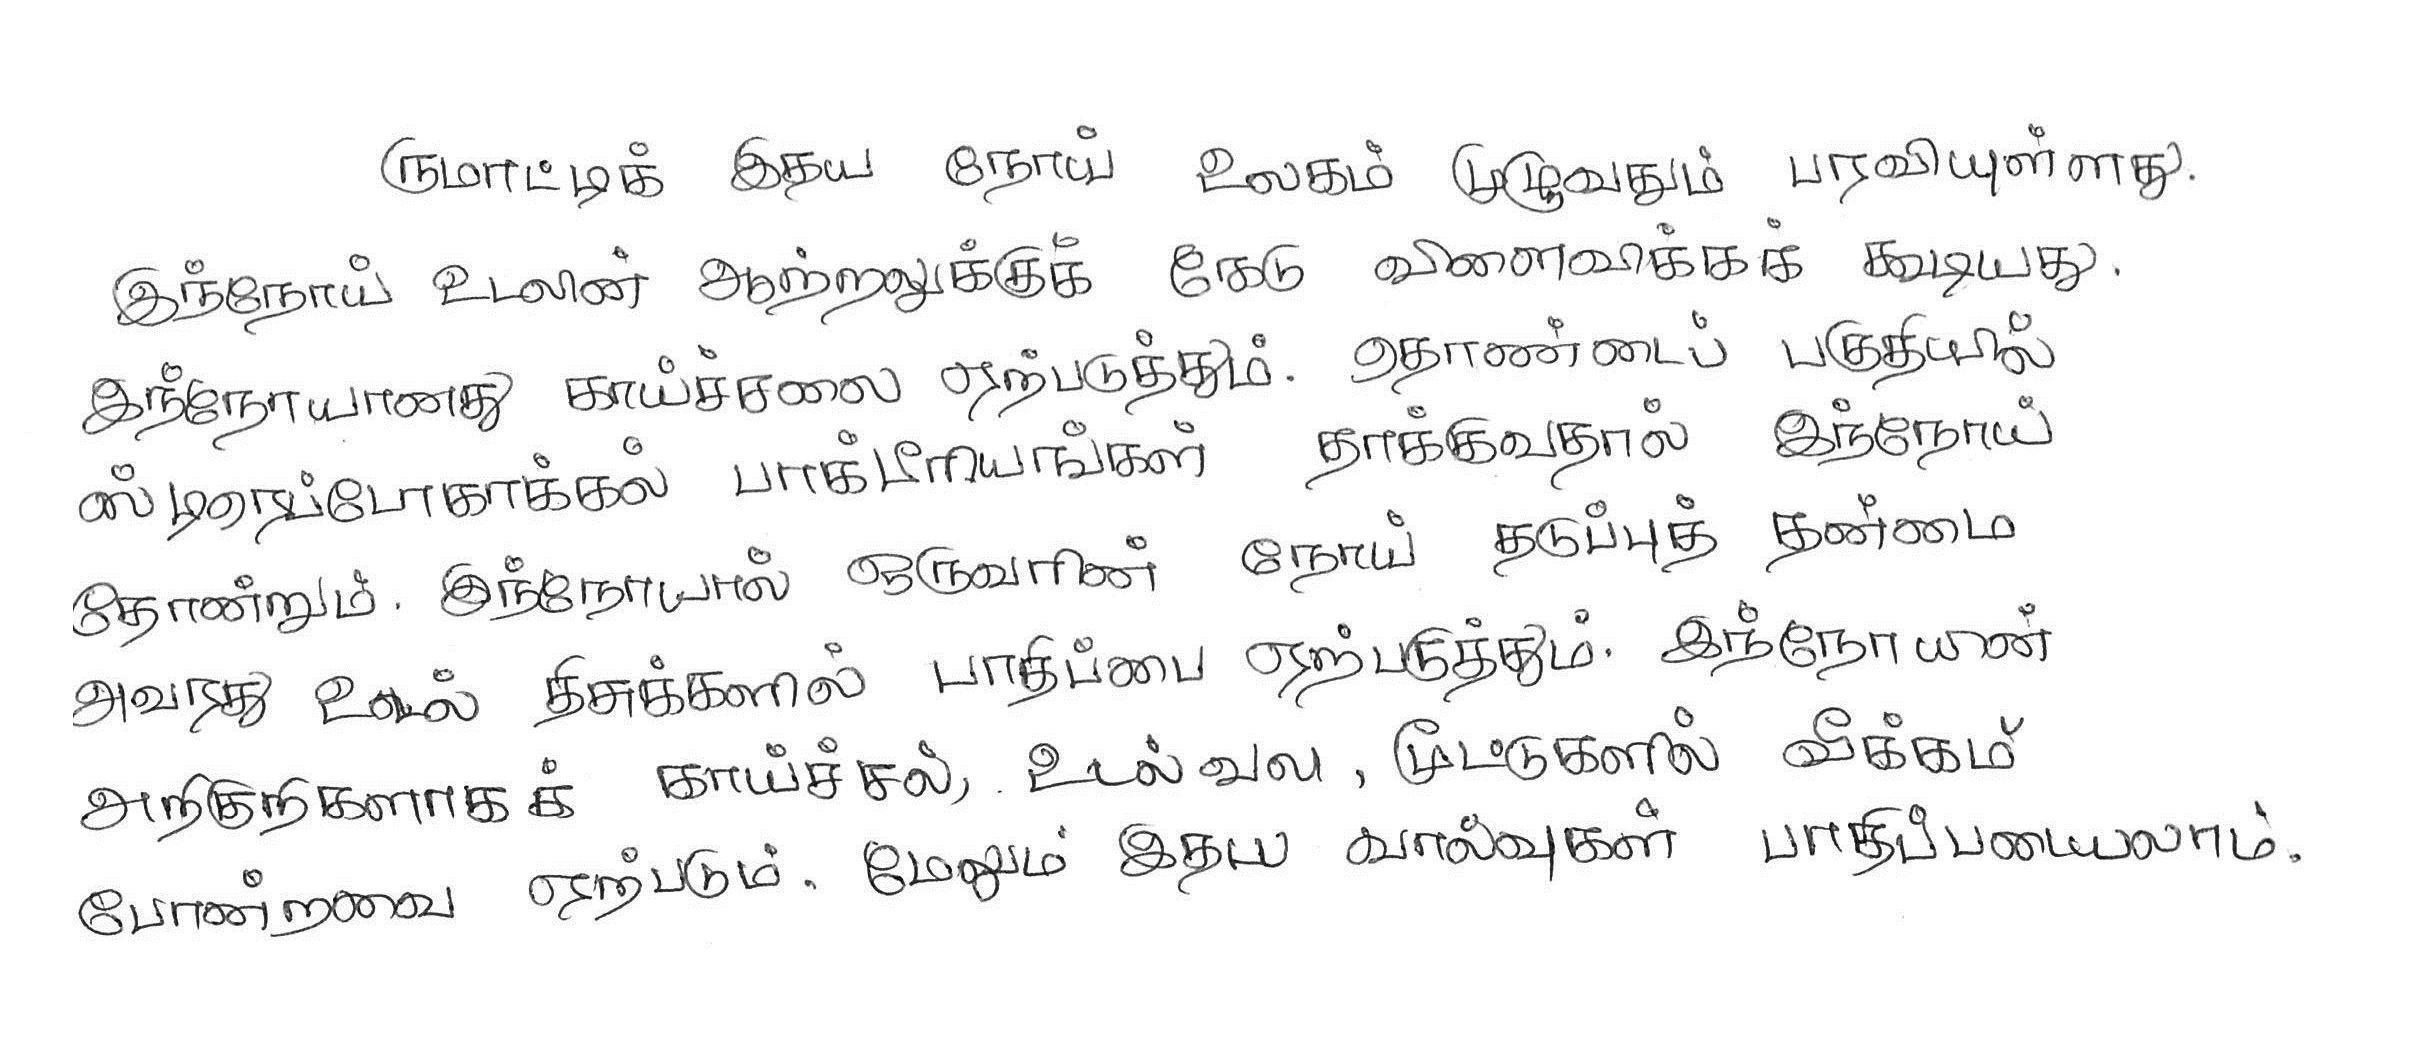 ருமாட்டிக் இதய நோய் உலகம் முழுவதும் பரவியுள்ளது.
இந்நோய் உடலின் ஆற்றலுக்குக் கேடு விளைவிக்கக் கூடியது.
இந்நோயானது காய்ச்சலை ஏற்படுத்தும். தொண்டைப் பகுதியில்
ஸ்டிரெப்போகாக்கல் பாக்டீரியங்கள் தாக்குவதால் இந்நோய்
தோன்றும். இந்நோயால் ஒருவரின் நோய் தடுப்புத் தன்மை
அவரது உடல் திசுக்களில் பாதிப்பை ஏற்படுத்தும். இந்நோயின்
அறிகுறிகளாகக் காய்ச்சல், உடல் வலி, மூட்டுகளில் வீக்கம்
போன்றவை ஏற்படும். மேலும் இதய வால்வுகள் பாதிப்படையலாம்.